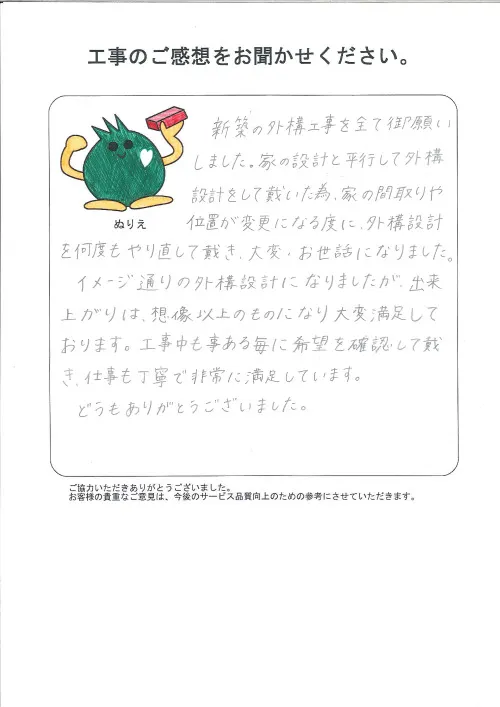 工事のご感想をお聞かせください。
新築の外構工事を全て御願い
しました。家の設計と平行して外構
設計をして戴いた為、家の間取りや
位置が変更になる度に、外構設計
を何度もやり直して戴き、大変、お世話になりました。
イメージ通りの外構設計になりましたが、出来
上がりは、想像以上のものになり大変満足して
おります。工事中も事ある毎に希望を確認して戴
き、仕事も丁寧で非常に満足しています。
どうもありがとうございました。
ぬりえ
ご協力いただきありがとうございました。
お客様の貴重なご意見は、今後のサービス品質向上のための参考にさせていただきます。